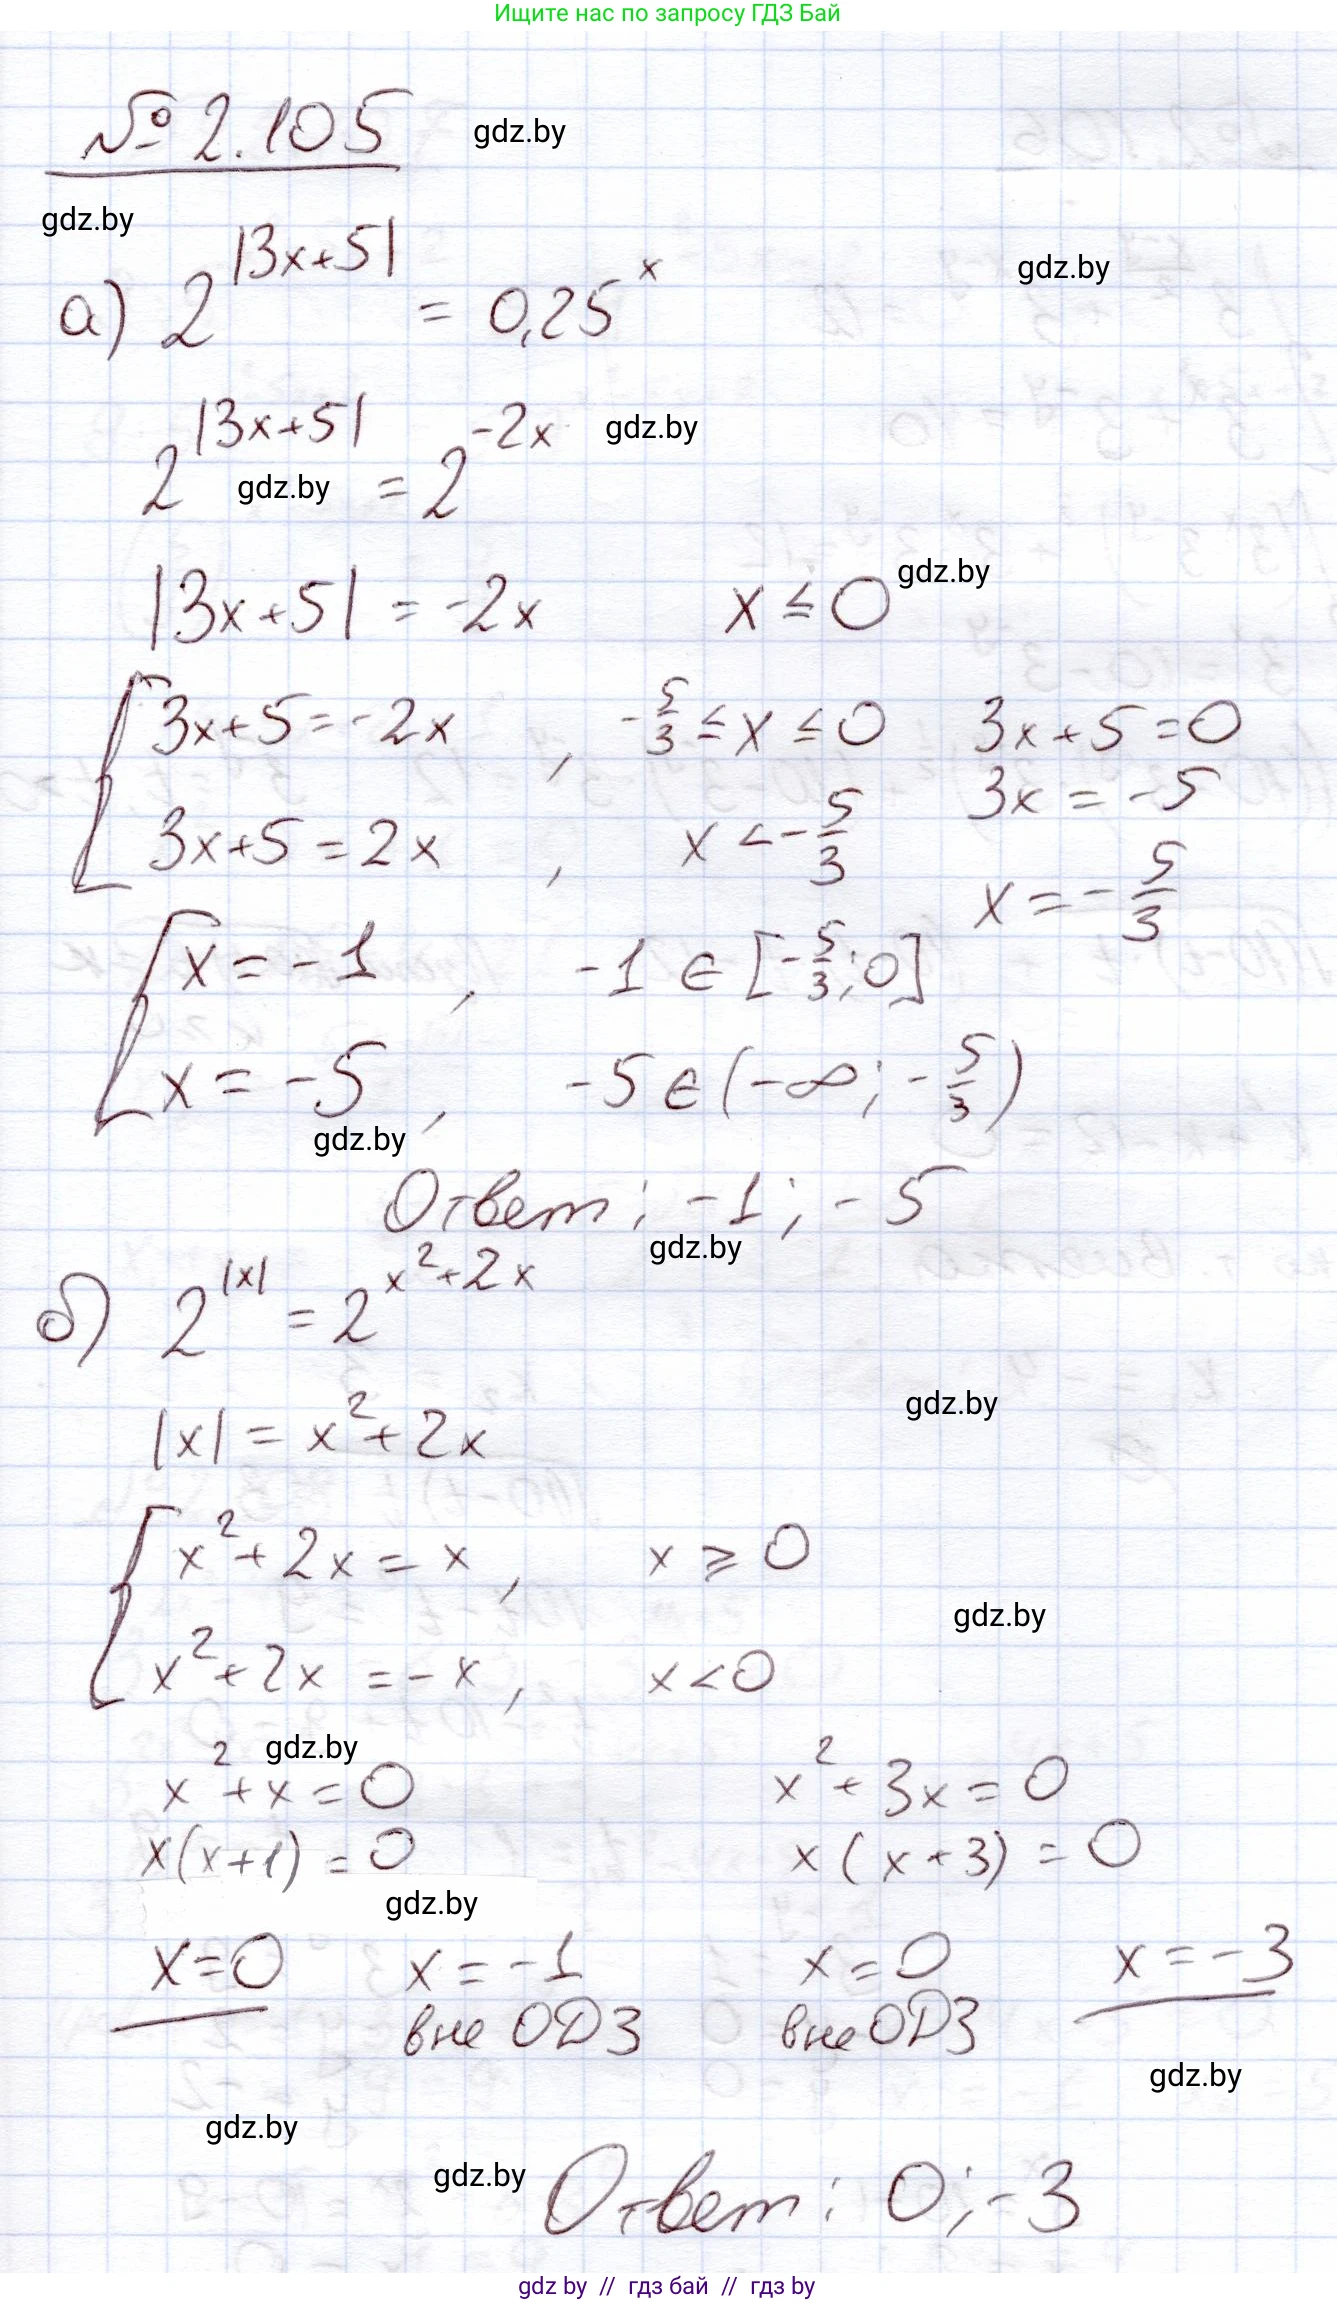 Ищите нас по запросу ГДЗ Бай
№ 2.105
gdz.by
gdz.by
gdz.by
а) 2^|3x+5| = 0,25^x
2^|3x+5| = 2^-2x
gdz.by
gdz.by
|3x+5| = -2x    x ≤ 0
gdz.by
[ 3x+5 = -2x , -5/3 ≤ x ≤ 0    3x+5=0
3x = -5
3x+5 = 2x , x < -5/3
x = -5/3
[ x = -1 , -1 ∈ [-5/3; 0]
x = -5 , -5 ∈ (-∞; -5/3)
gdz.by
Ответ: -1; -5
gdz.by
б) 2^|x| = 2^x²+2x
gdz.by
|x| = x² + 2x
[ x² + 2x = x , x ≥ 0
gdz.by
x² + 2x = -x , x < 0
gdz.by
x² + x = 0    x² + 3x = 0
x(x+1) = 0    x(x+3) = 0
gdz.by
x=0    x = -1    x = 0    x = -3
вне ОДЗ    вне ОДЗ
gdz.by
gdz.by
gdz.by
Ответ: 0; -3
gdz by // гдз бай // гдз by